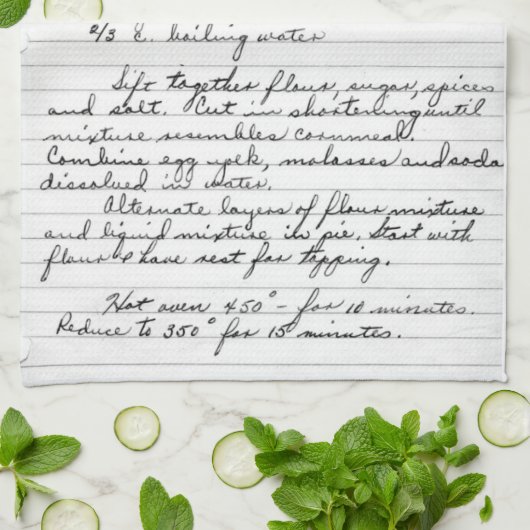 2/3 C. boiling water
Sift together flour, sugar, spices
and salt. Cut in shortening until
mixture resembles cornmeal.
Combine egg yolk, molasses and soda
dissolved in water.
Alternate layers of flour mixture
and liquid mixture in pie. Start with
flour & have rest for topping.
Hot oven 450° - for 10 minutes.
Reduce to 350° for 15 minutes.